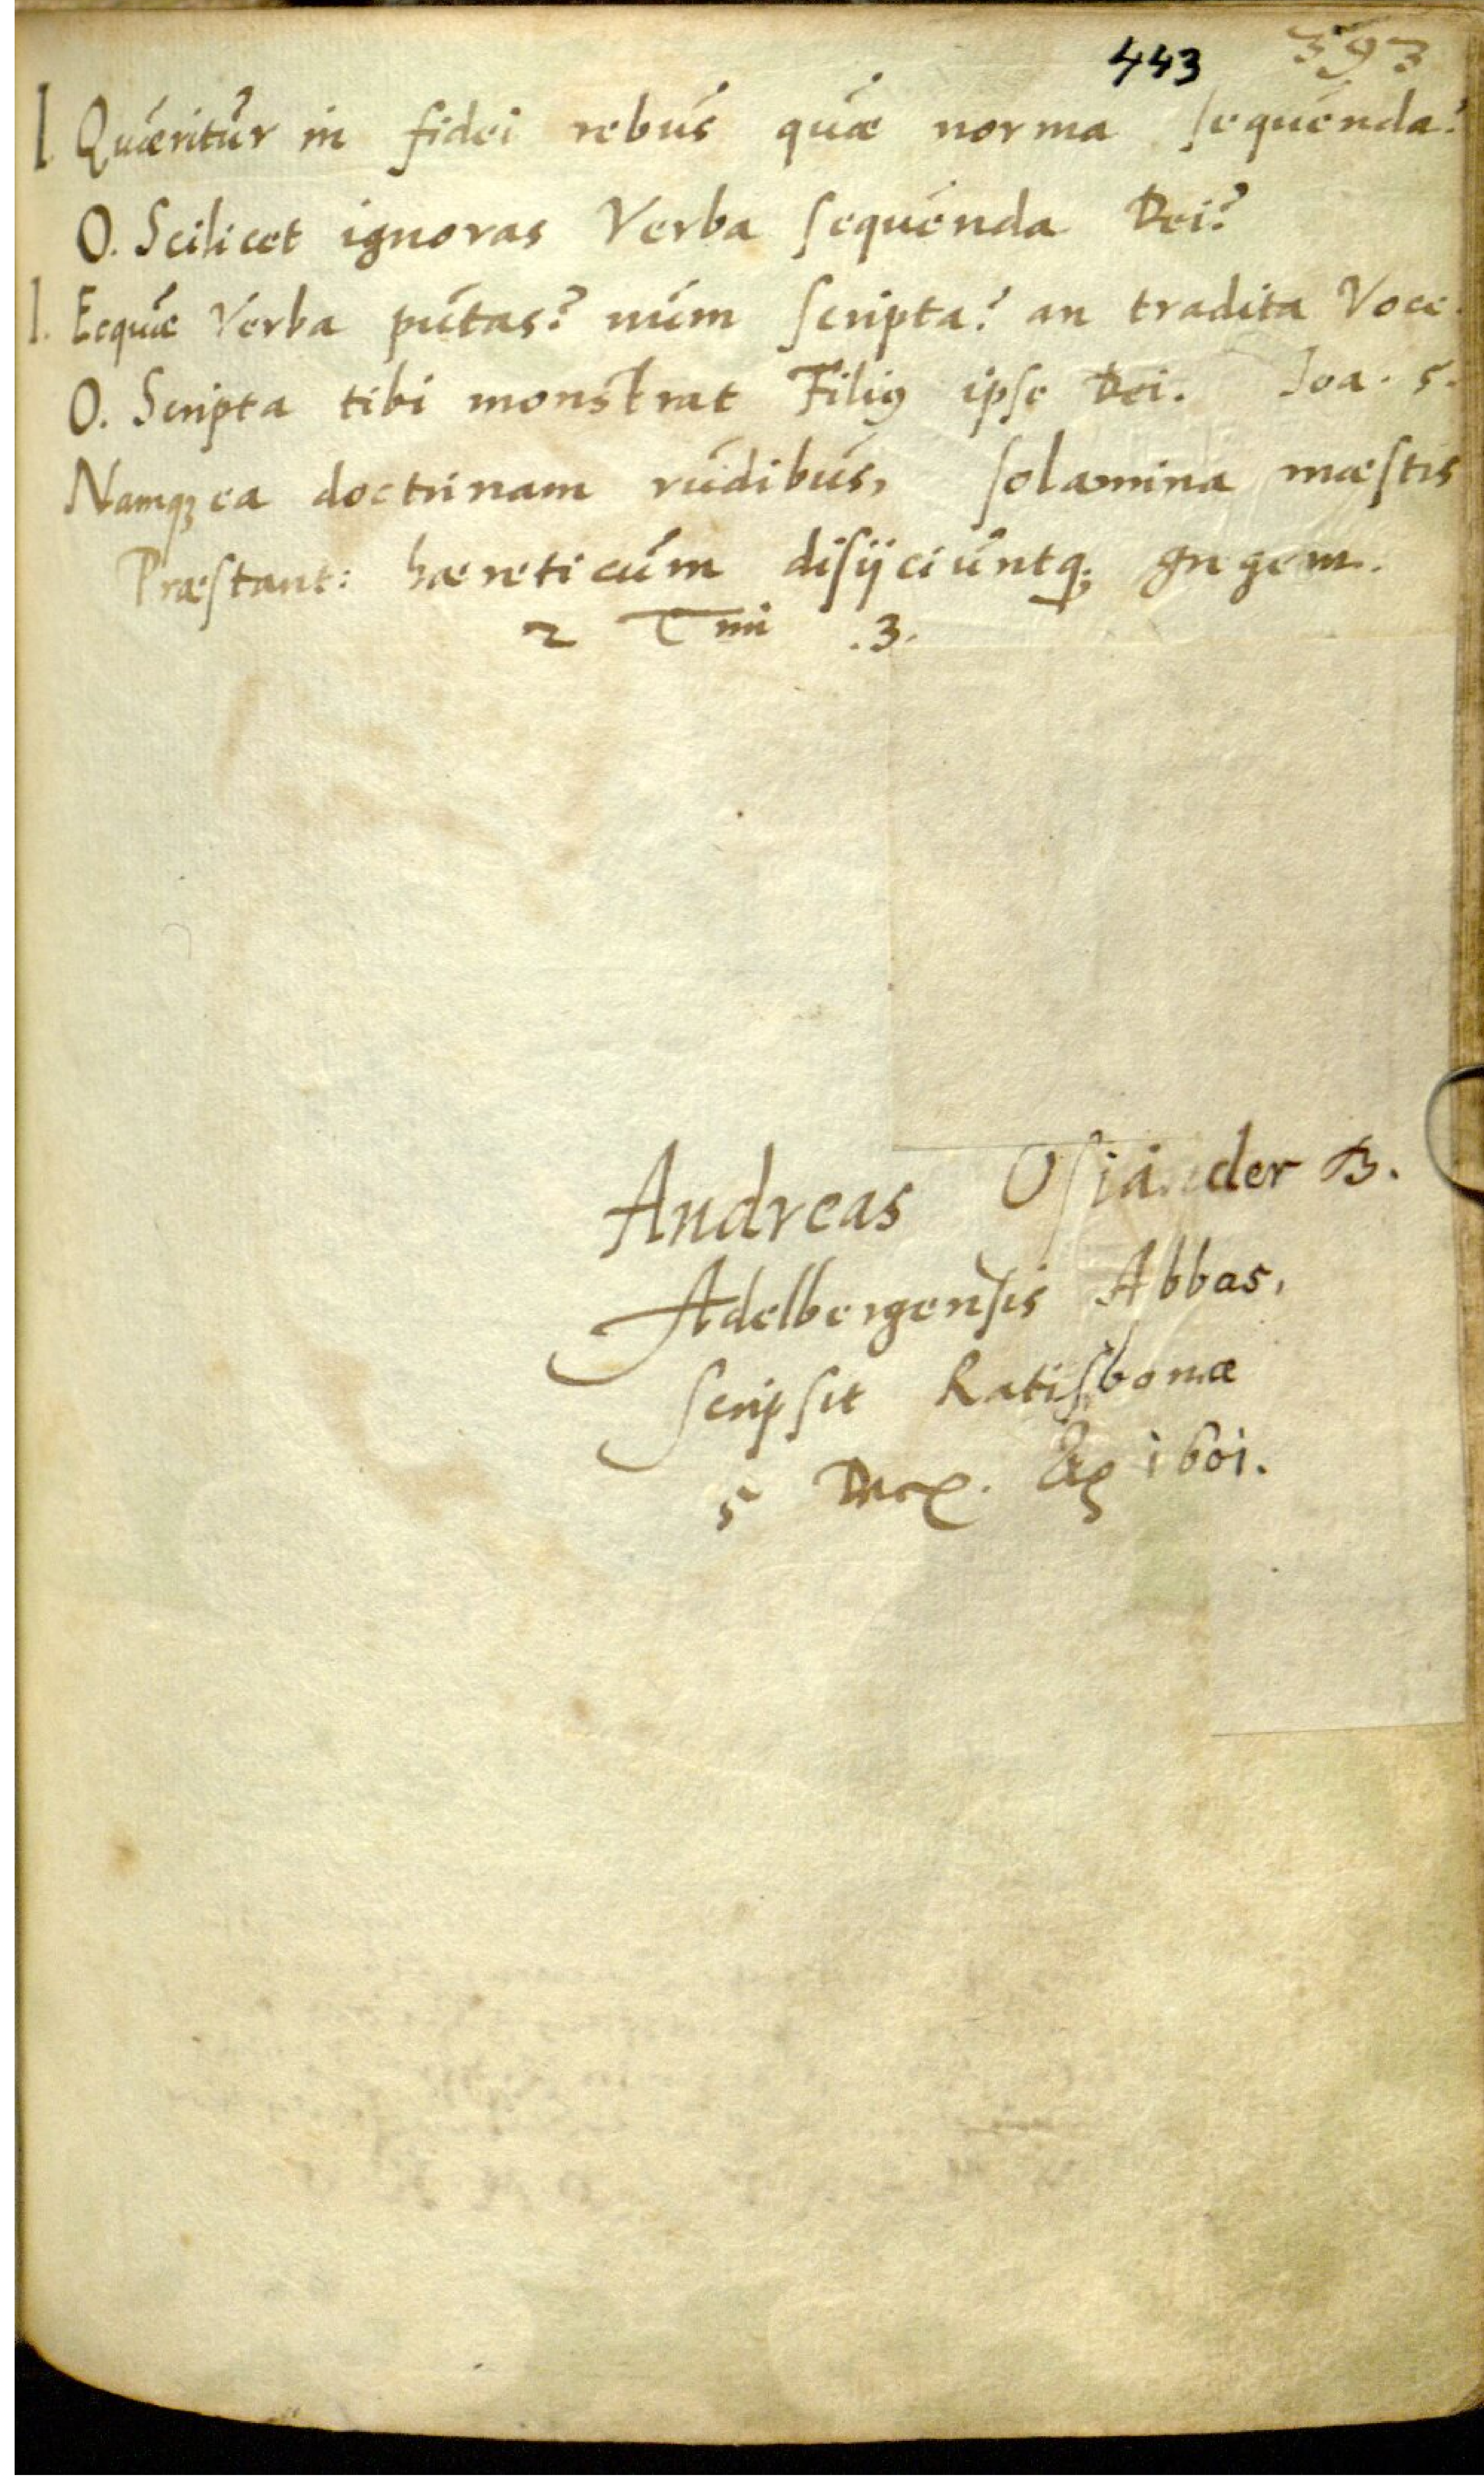 443 393
I. Quæritur in fidei rebus quæ norma sequenda?
O. Scilicet ignoras Verba sequenda Dei?
I. Ecquæ Verba putas? num scripta? an tradita Voce.
O. Scripta tibi monstrat Filiꝰ ipse Dei. Joa. 5.
Namqꝫ ea doctrinam rudibus, solamina mæstis
Præstant: hæreticum disijciuntqꝫ gregem.
2 Timi .3.
Andreas Osiander D.
Adelbergensis Abbas,
scripsit Ratisbonæ
5 Dec. 1601.